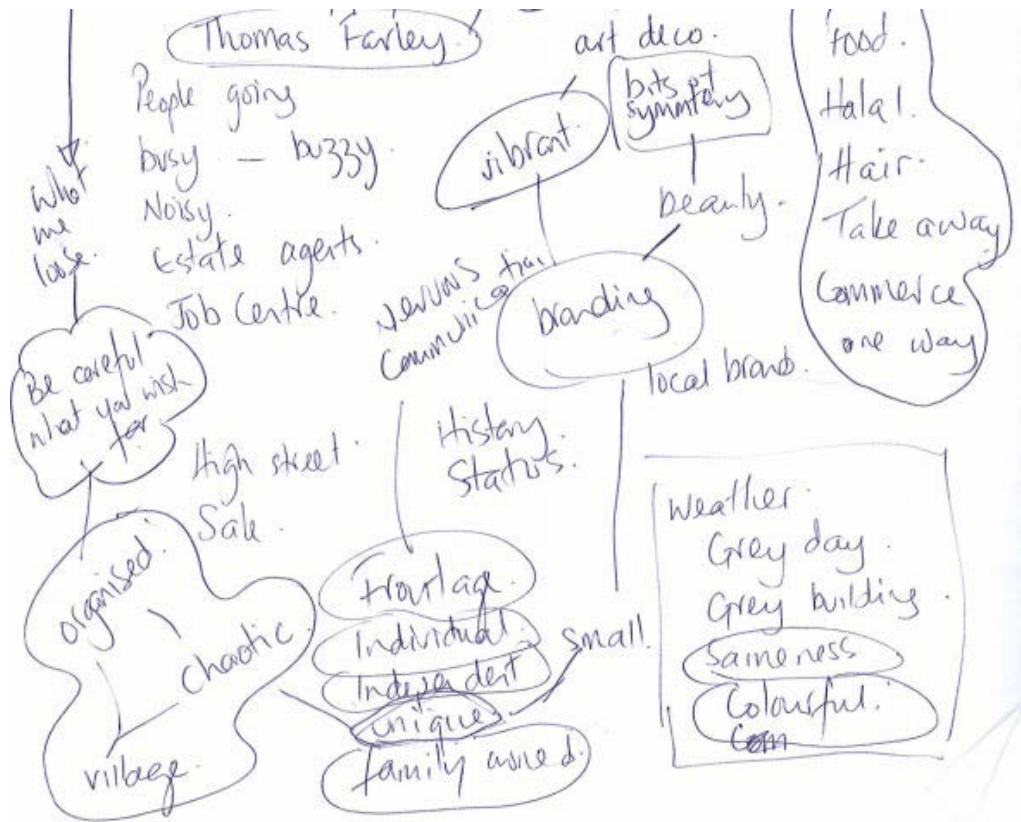 Thomas Farley.
People going
busy – buzzy.
Noisy.
Estate agents.
Job Centre.
what
me
loose.
Be careful
what you wish
for
High street.
Sale.
organised.
chaotic
village.
art deco.
vibrant.
bits of
symmtery
beauty.
branding
local brand.
History.
Status.
Frontage.
Individual.
Independent
unique
family owned.
small.
food.
Halal.
Hair.
Take away
Commerce
one way
Weather.
Grey day.
Grey building.
Sameness
Colourful.